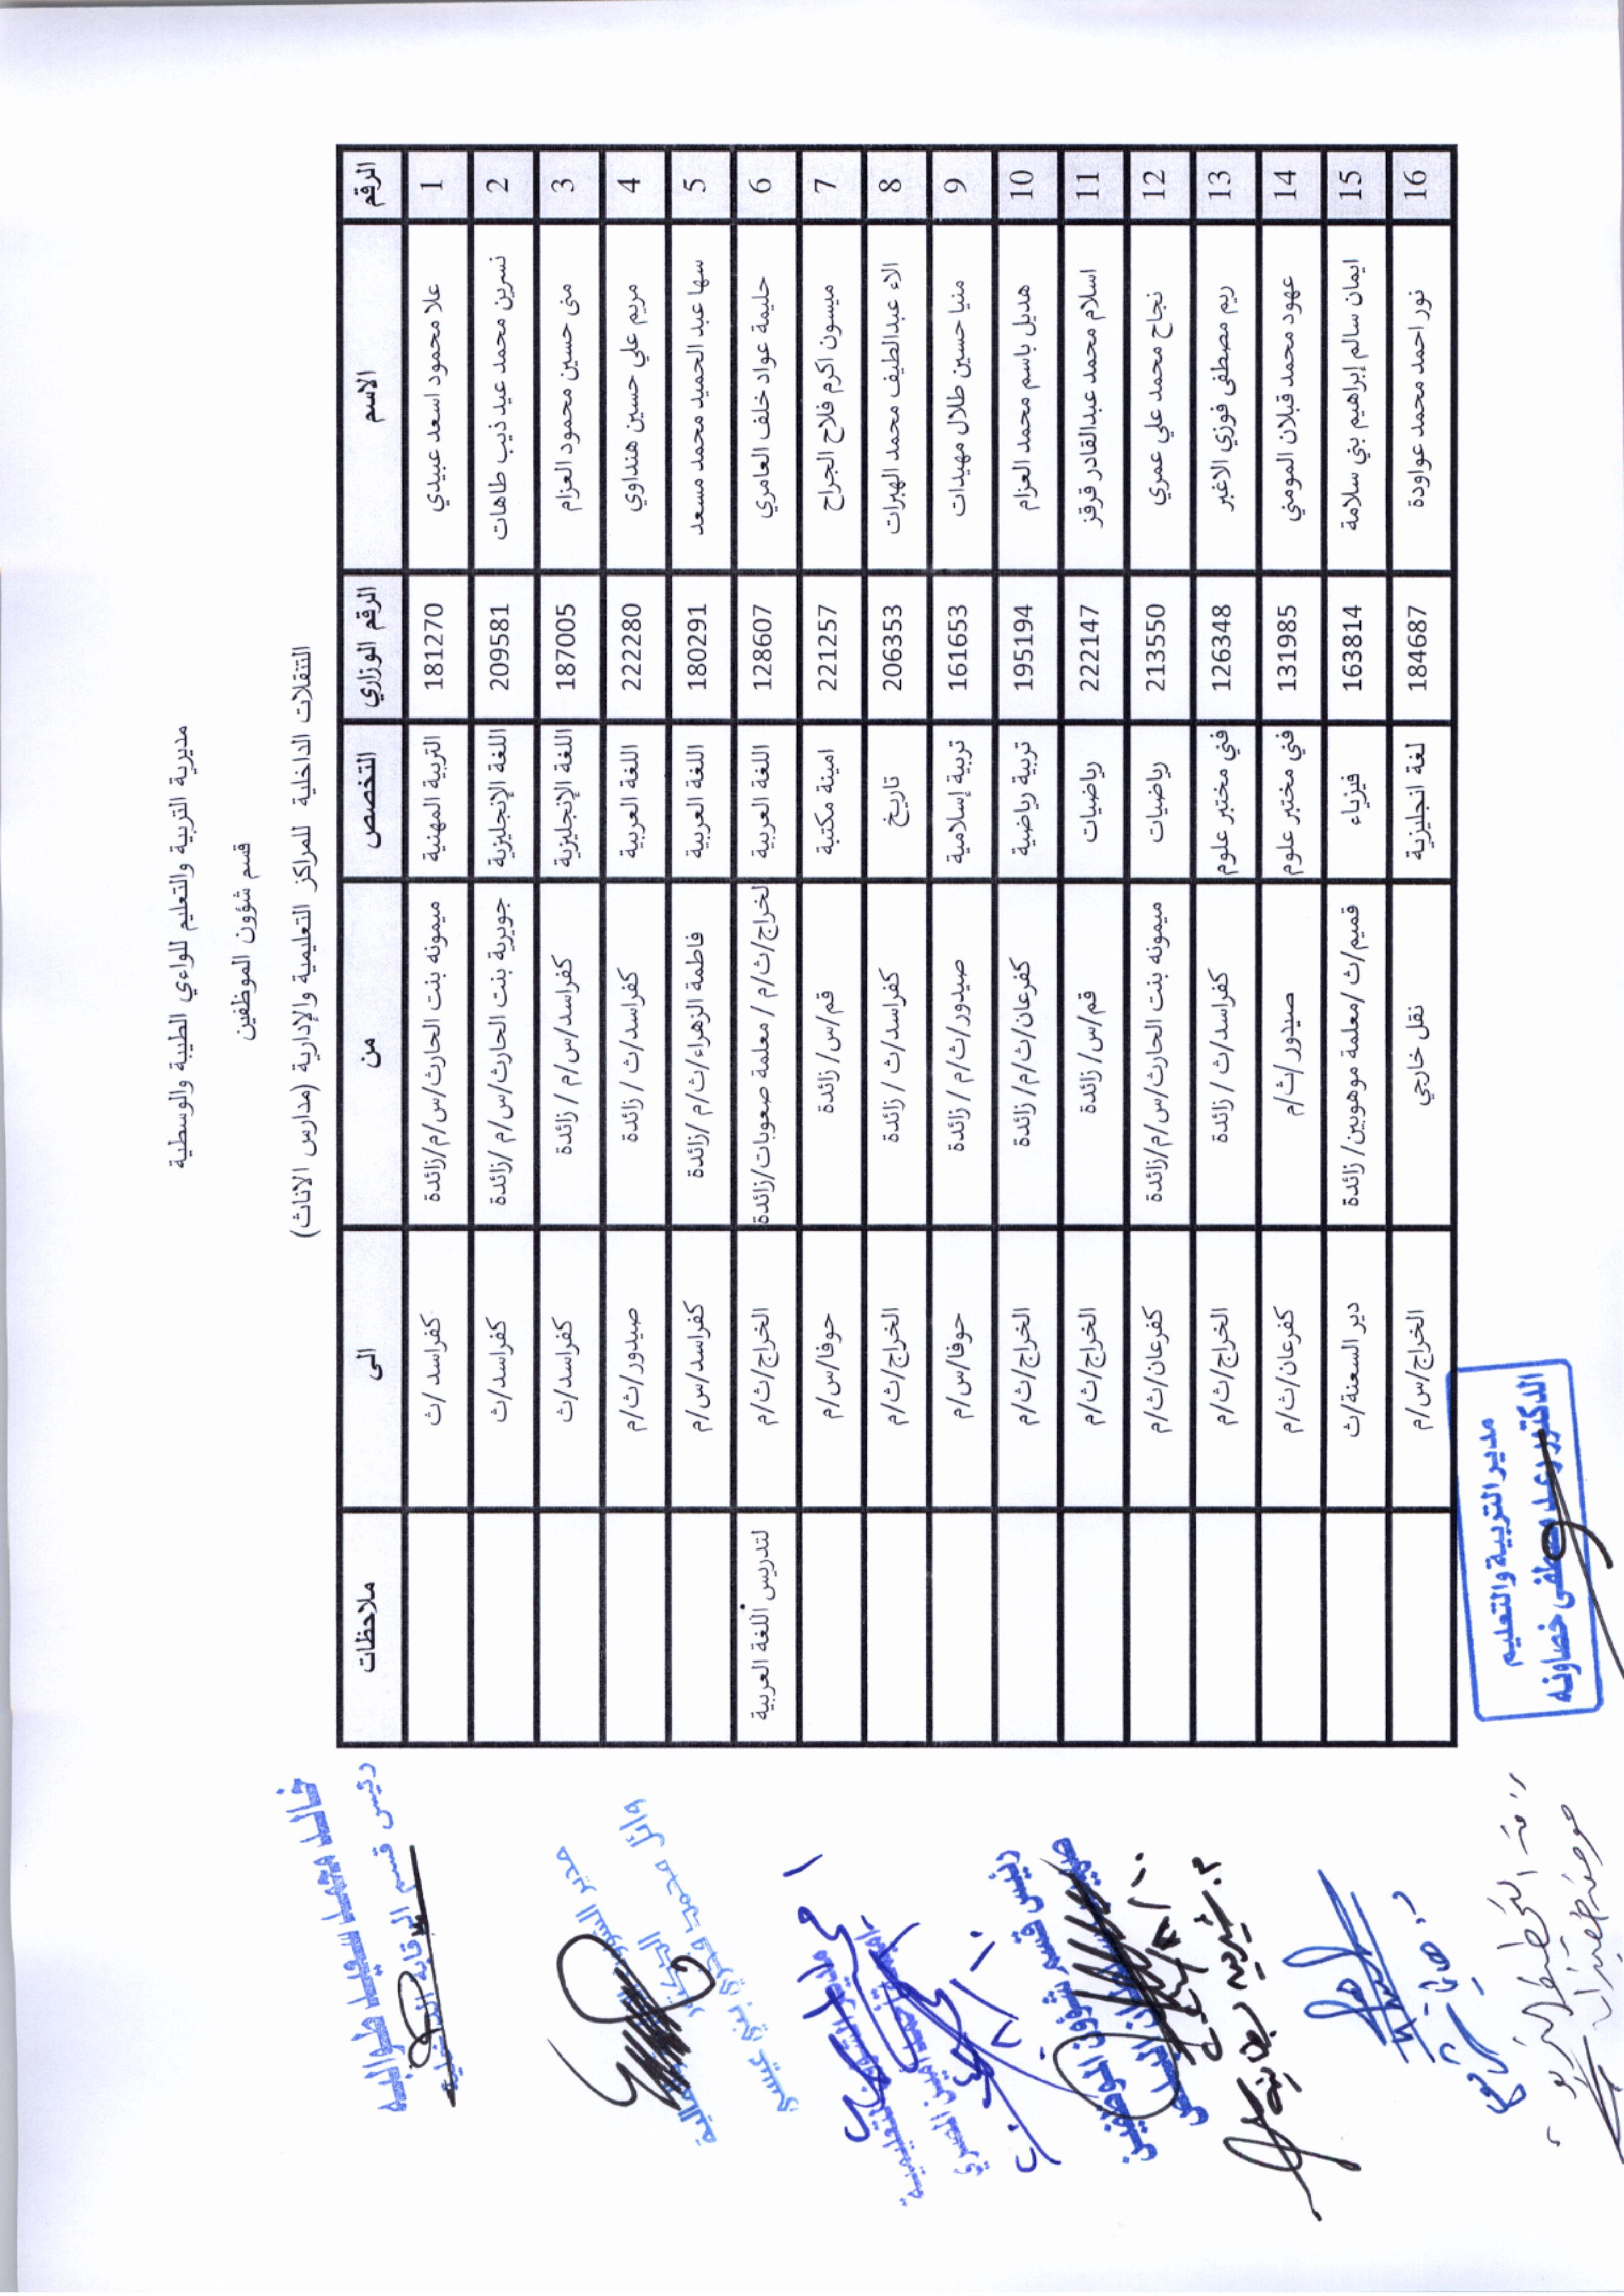 مديرية التربية والتعليم للواءي الطيبة والوسطية
قسم شؤون الموظفين
التنقلات الداخلية للمراكز التعليمية والإدارية (مدارس الاناث)
الرقم الاسم الرقم الوزاري التخصص من الى ملاحظات
1 علا محمود اسعد عبيدي 181270 التربية المهنية ميمونه بنت الحارث/س/م/زائدة كفراسد /ث
2 نسرين محمد عيد ذيب طاهات 209581 اللغة الإنجليزية جويرية بنت الحارث/س/م /زائدة كفراسد/ث
3 منى حسين محمود العزام 187005 اللغة الإنجليزية كفراسد/س/م / زائدة كفراسد/ث
4 مريم علي حسين هنداوي 222280 اللغة العربية كفراسد/ث / زائدة صيدور/ث/م
5 سها عبد الحميد محمد مسعد 180291 اللغة العربية فاطمة الزهراء/ث/م /زائدة كفراسد/س/م
6 حليمة عواد خلف العامري 128607 اللغة العربية لخراج/ث/م / معلمة صعوبات/زائدة الخراج/ث/م لتدريس اللغة العربية
7 ميسون اكرم فلاح الجراح 221257 امينة مكتبة قم/س/ زائدة حوفا/س/م
8 الاء عبدالطيف محمد الهبرات 206353 تاريخ كفراسد/ث / زائدة الخراج/ث/م
9 منيا حسين طلال مهيدات 161653 تربية إسلامية صيدور/ث/م / زائدة حوفا/س/م
10 هديل باسم محمد العزام 195194 تربية رياضية كفرعان/ث/م/ زائدة الخراج/ث/م
11 اسلام محمد عبدالقادر قرقز 222147 رياضيات قم/س/ زائدة الخراج/ث/م
12 نجاح محمد علي عمري 213550 رياضيات ميمونه بنت الحارث/س/م/زائدة كفرعان/ث/م
13 ريم مصطفى فوزي الاغبر 126348 فني مختبر علوم كفراسد/ث / زائدة الخراج/ث/م
14 عهود محمد قبلان المومني 131985 فني مختبر علوم صيدور/ث/م كفرعان/ث/م
15 ايمان سالم إبراهيم بني سلامة 163814 فيزياء قميم/ث /معلمة موهوبين/ زائدة دير السعنة/ث
16 نور احمد محمد عواودة 184687 لغة انجليزية نقل خارجي الخراج/س/م
مدير التربية والتعليم
الدكتور رعد مصطفى خصاونه
رئيس قسم الرقابة الداخلية
رئيس قسم شؤون الموظفين